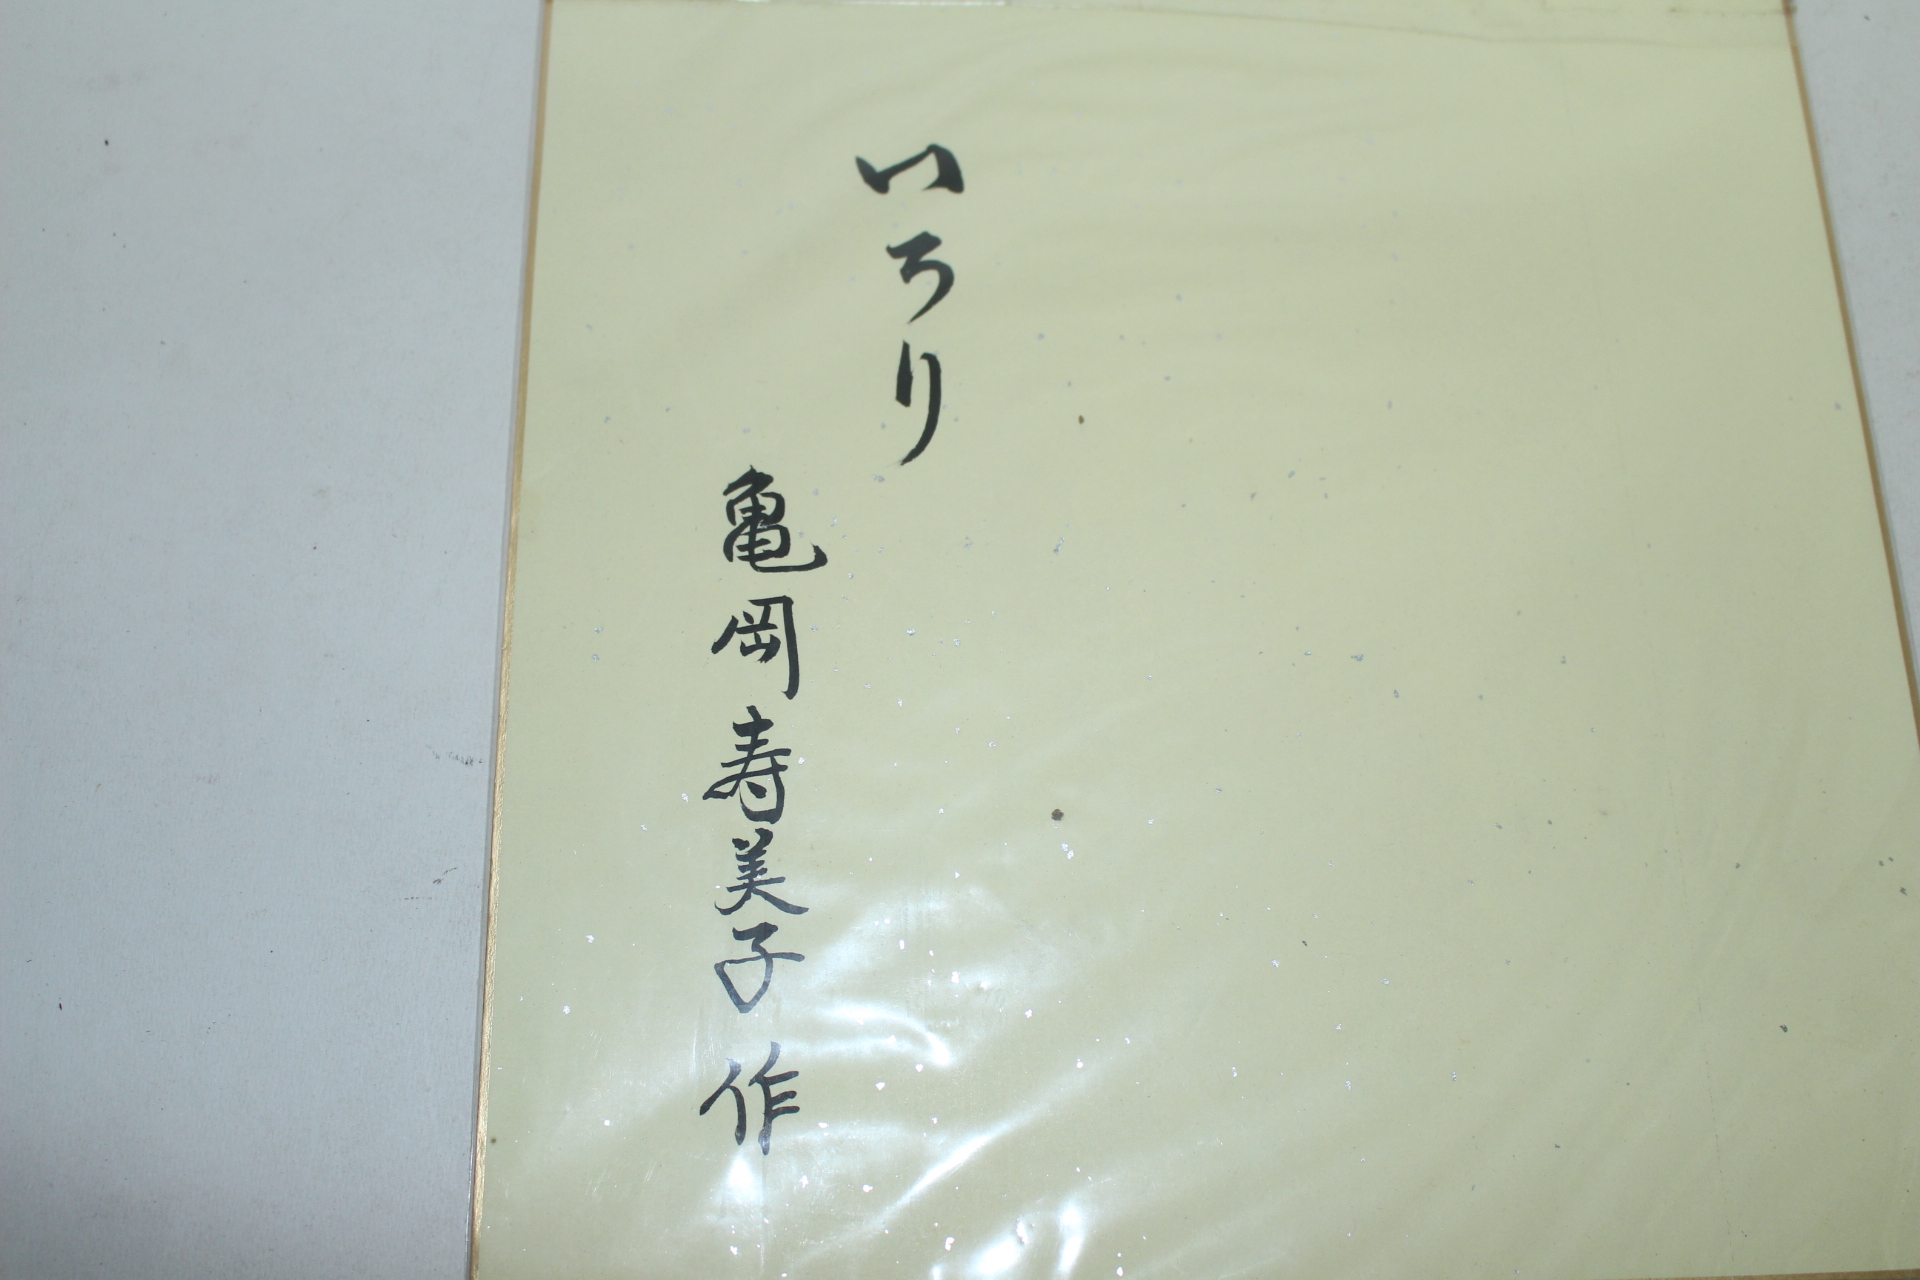 いろり
亀岡寿美子作